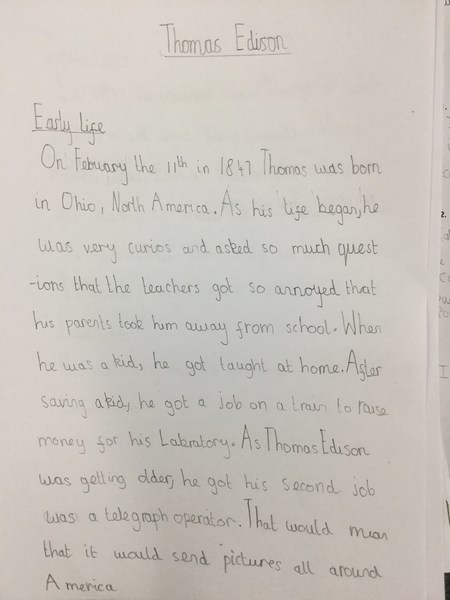 Thomas Edison
Early life
On Febuary the 11th in 1847 Thomas was born
in Ohio, North America. As his life began, he
was very curios and asked so much quest
-ions that the teachers got so annoyed that
his parents took him away from school. When
he was a kid, he got laught at home. After
saving a kid, he got a job on a train to raise
money for his Labratory. As Thomas Edison
was getting older, he got his second job
was a telegraph operator. That would mean
that it would send pictures all around
America